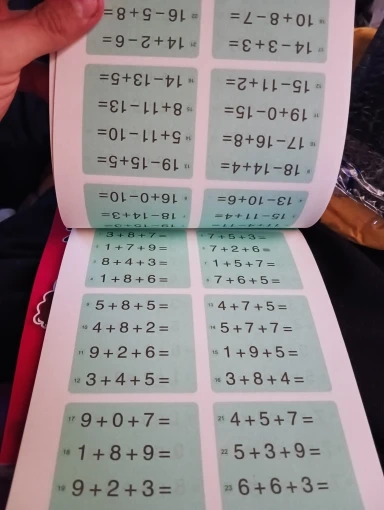 16-5+8=
14+2-6=
10+8-7=
14-3+3=
14-13+5=
8+11-13=
5+11-10=
19-15+5=
15-11+2=
19+0-15=
17-16+8=
18-14+4=
16+0-10=
18-14+3=
13-10+6=
15-11+4=
3+8+7=
1+7+9=
8+4+3=
1+8+6=
7+5+3=
7+2+6=
1+5+7=
7+6+5=
9 5+8+5=
10 4+8+2=
11 9+2+6=
12 3+4+5=
13 4+7+5=
14 5+7+7=
15 1+9+5=
16 3+8+4=
17 9+0+7=
18 1+8+9=
19 9+2+3=
21 4+5+7=
22 5+3+9=
23 6+6+3=